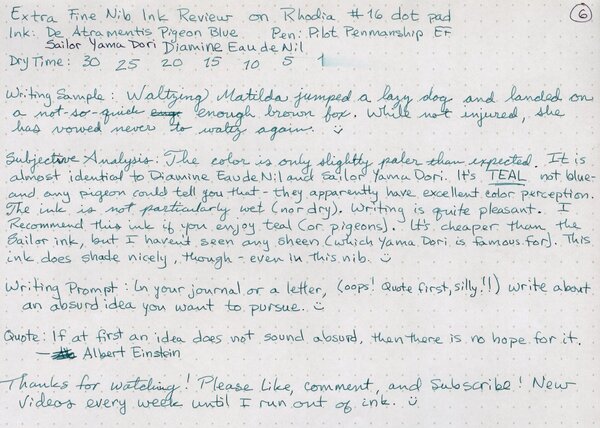 Extra Fine Nib Ink Review on Rhodia #16 dot pad
6
Ink: De Atramentis Pigeon Blue Pen: Pilot Penmanship EF
Sailor Yama Dori Diamine Eau de Nil
Dry Time: 30 25 20 15 10 5 1
Writing Sample: Waltzing Matilda jumped a lazy dog and landed on
a not-so-quick enough brown fox. While not injured, she
has vowed never to waltz again. :)
Subjective Analysis: The color is only slightly paler than expected. It is
almost idential to Diamine Eau de Nil and Sailor Yama Dori. It's TEAL not blue-
and any pigeon could tell you that - they apparently have excellent color perception.
The ink is not particularly wet (nor dry). Writing is quite pleasant. I
Recommend this ink if you enjoy teal (or pigeons). It's cheaper than the
Sailor ink, but I havent seen any sheen (which Yama Dori is famous for). This
ink does shade nicely, though - even in this nib. :)
Writing Prompt: In your journal or a letter, (oops! Quote first, silly!!) write about
an absurd idea you want to pursue. :)
Quote: If at first an idea does not sound absurd, then there is no hope for it.
- Albert Einstein
Thanks for watching! Please Like, comment, and Subscribe! New
Videos every week until I run out of ink. :)